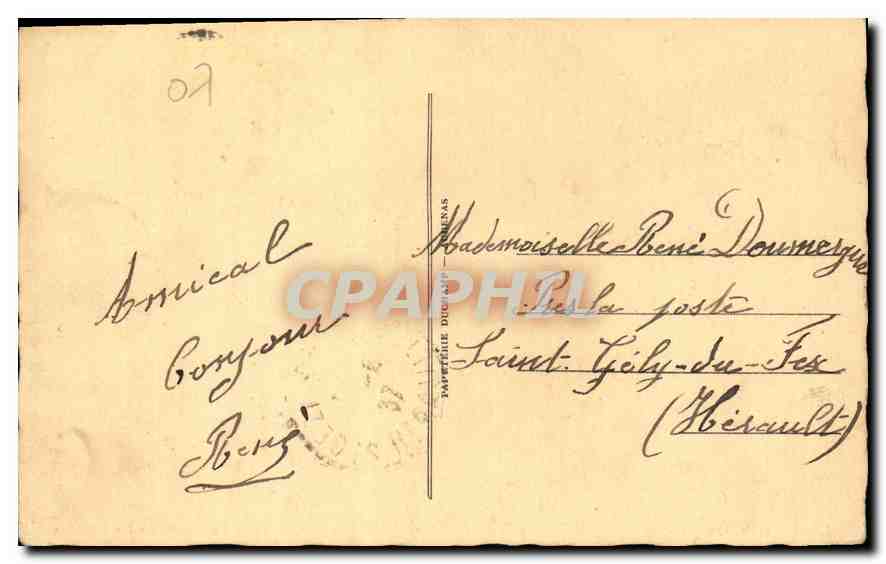 07
Amical
Bonjour
René
PAPETERIE DUCHAMP — AUBENAS
CPAPHIL
Mademoiselle René Doumergue
Près la poste
Saint-Gély-du-Fesc
(Hérault)
37